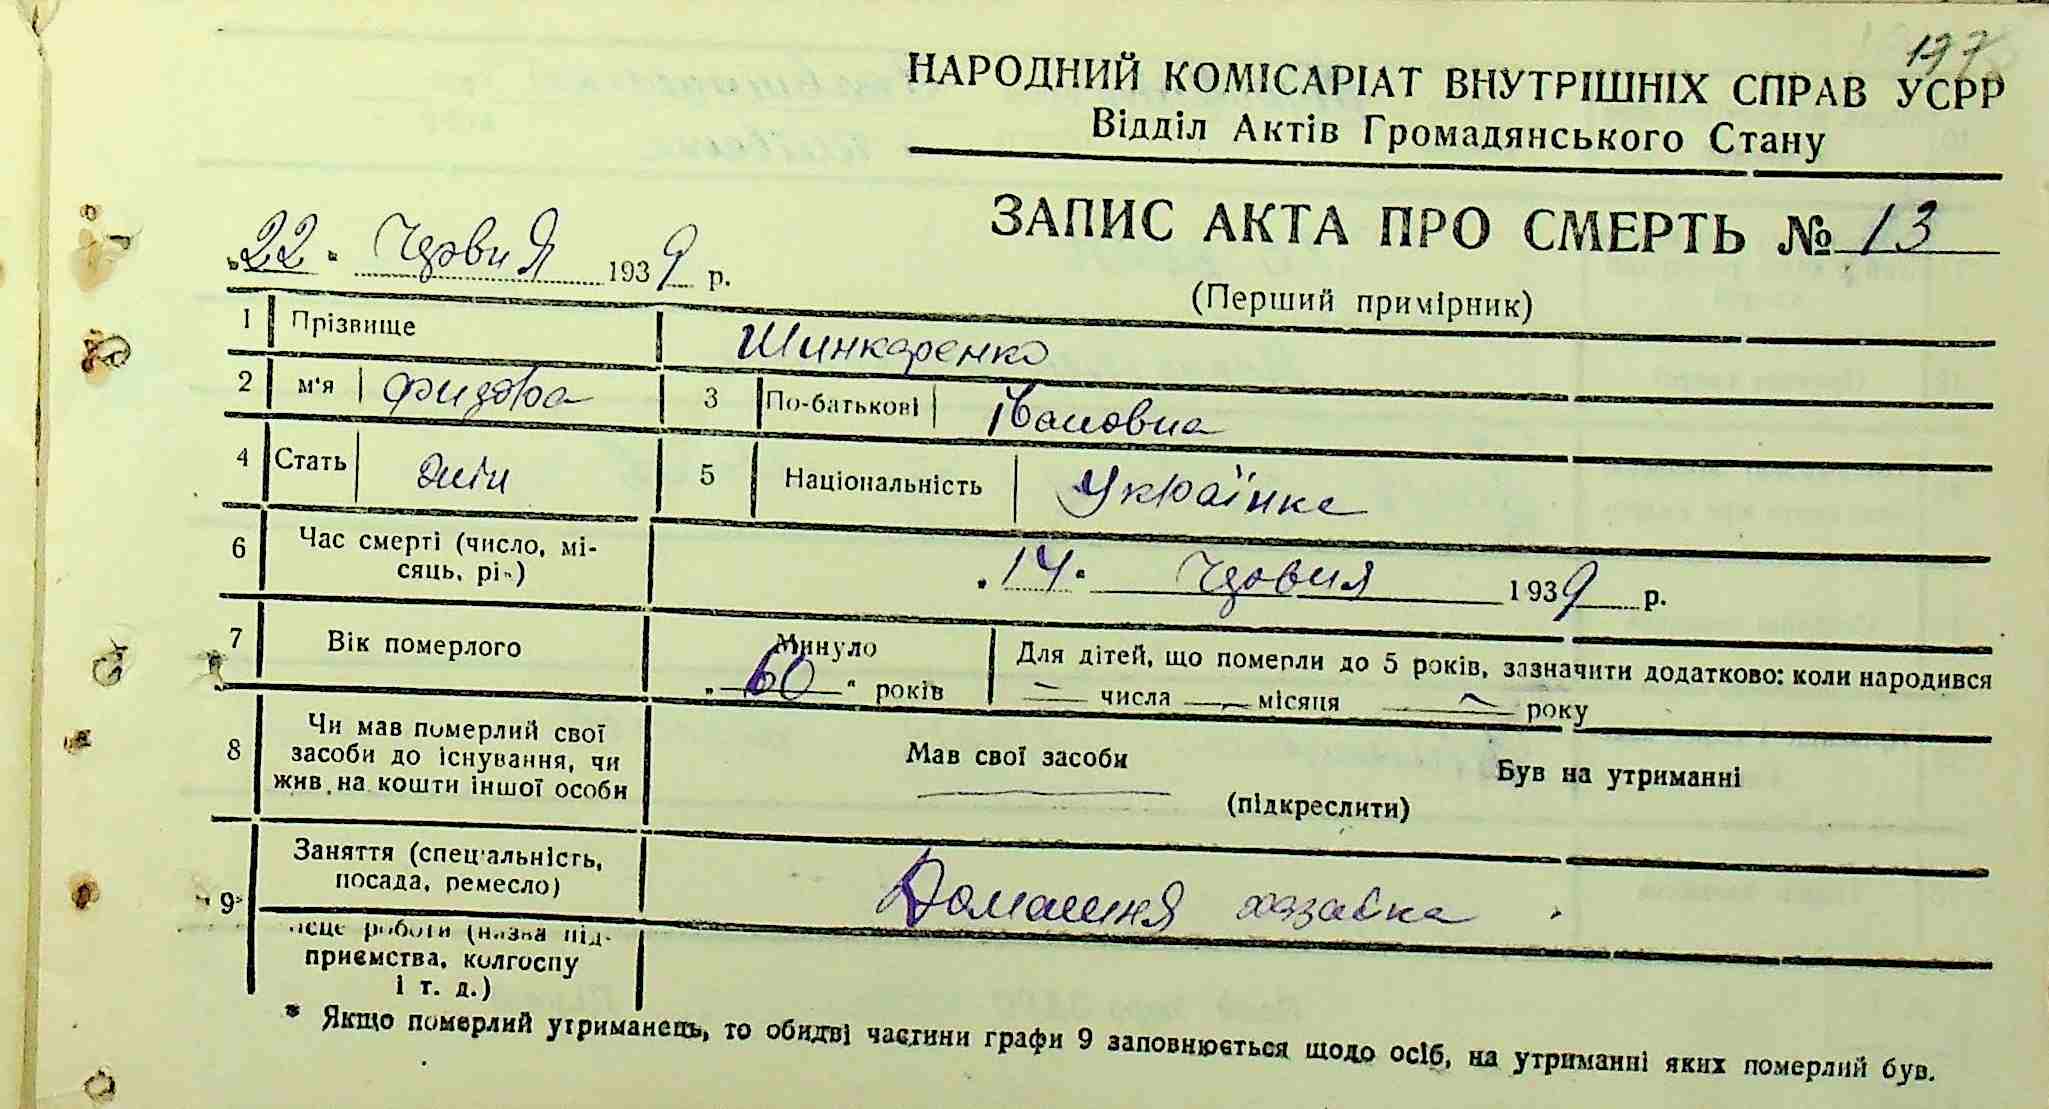 197
НАРОДНИЙ КОМІСАРІАТ ВНУТРІШНІХ СПРАВ УСРР
Відділ Актів Громадянського Стану
ЗАПИС АКТА ПРО СМЕРТЬ № 13
„22" Червня 1939 р.
(Перший примірник)
1 Прізвище Шинкаренко
2 м'я 3 По-батькові Івановна
4 Стать жін 5 Національність Українка
6 Час смерті (число, мі-
сяць, рік) „14" Червня 1939 р.
7 Вік померлого Минуло Для дітей, що померли до 5 років, зазначити додатково: коли народився
„60" років — числа — місяця — року
8 Чи мав померлий свої
засоби до існування, чи
жив на кошти іншої особи
Мав свої засоби Був на утриманні
(підкреслити)
9 Заняття (спеціальність,
посада, ремесло) Домашня хазяйка
місце роботи (назва під-
приємства, колгоспу
і т. д.)
* Якщо померлий утриманець, то обидві частини графи 9 заповнюється щодо осіб, на утриманні яких померлий був.